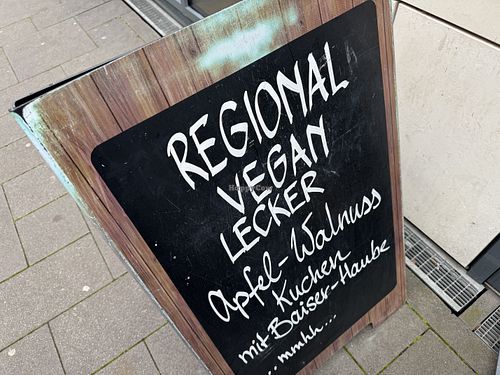 REGIONAL
VEGAN
LECKER
Apfel-Walnuss
Kuchen
mit Baiser-Haube
...mmhh...
HappyCow